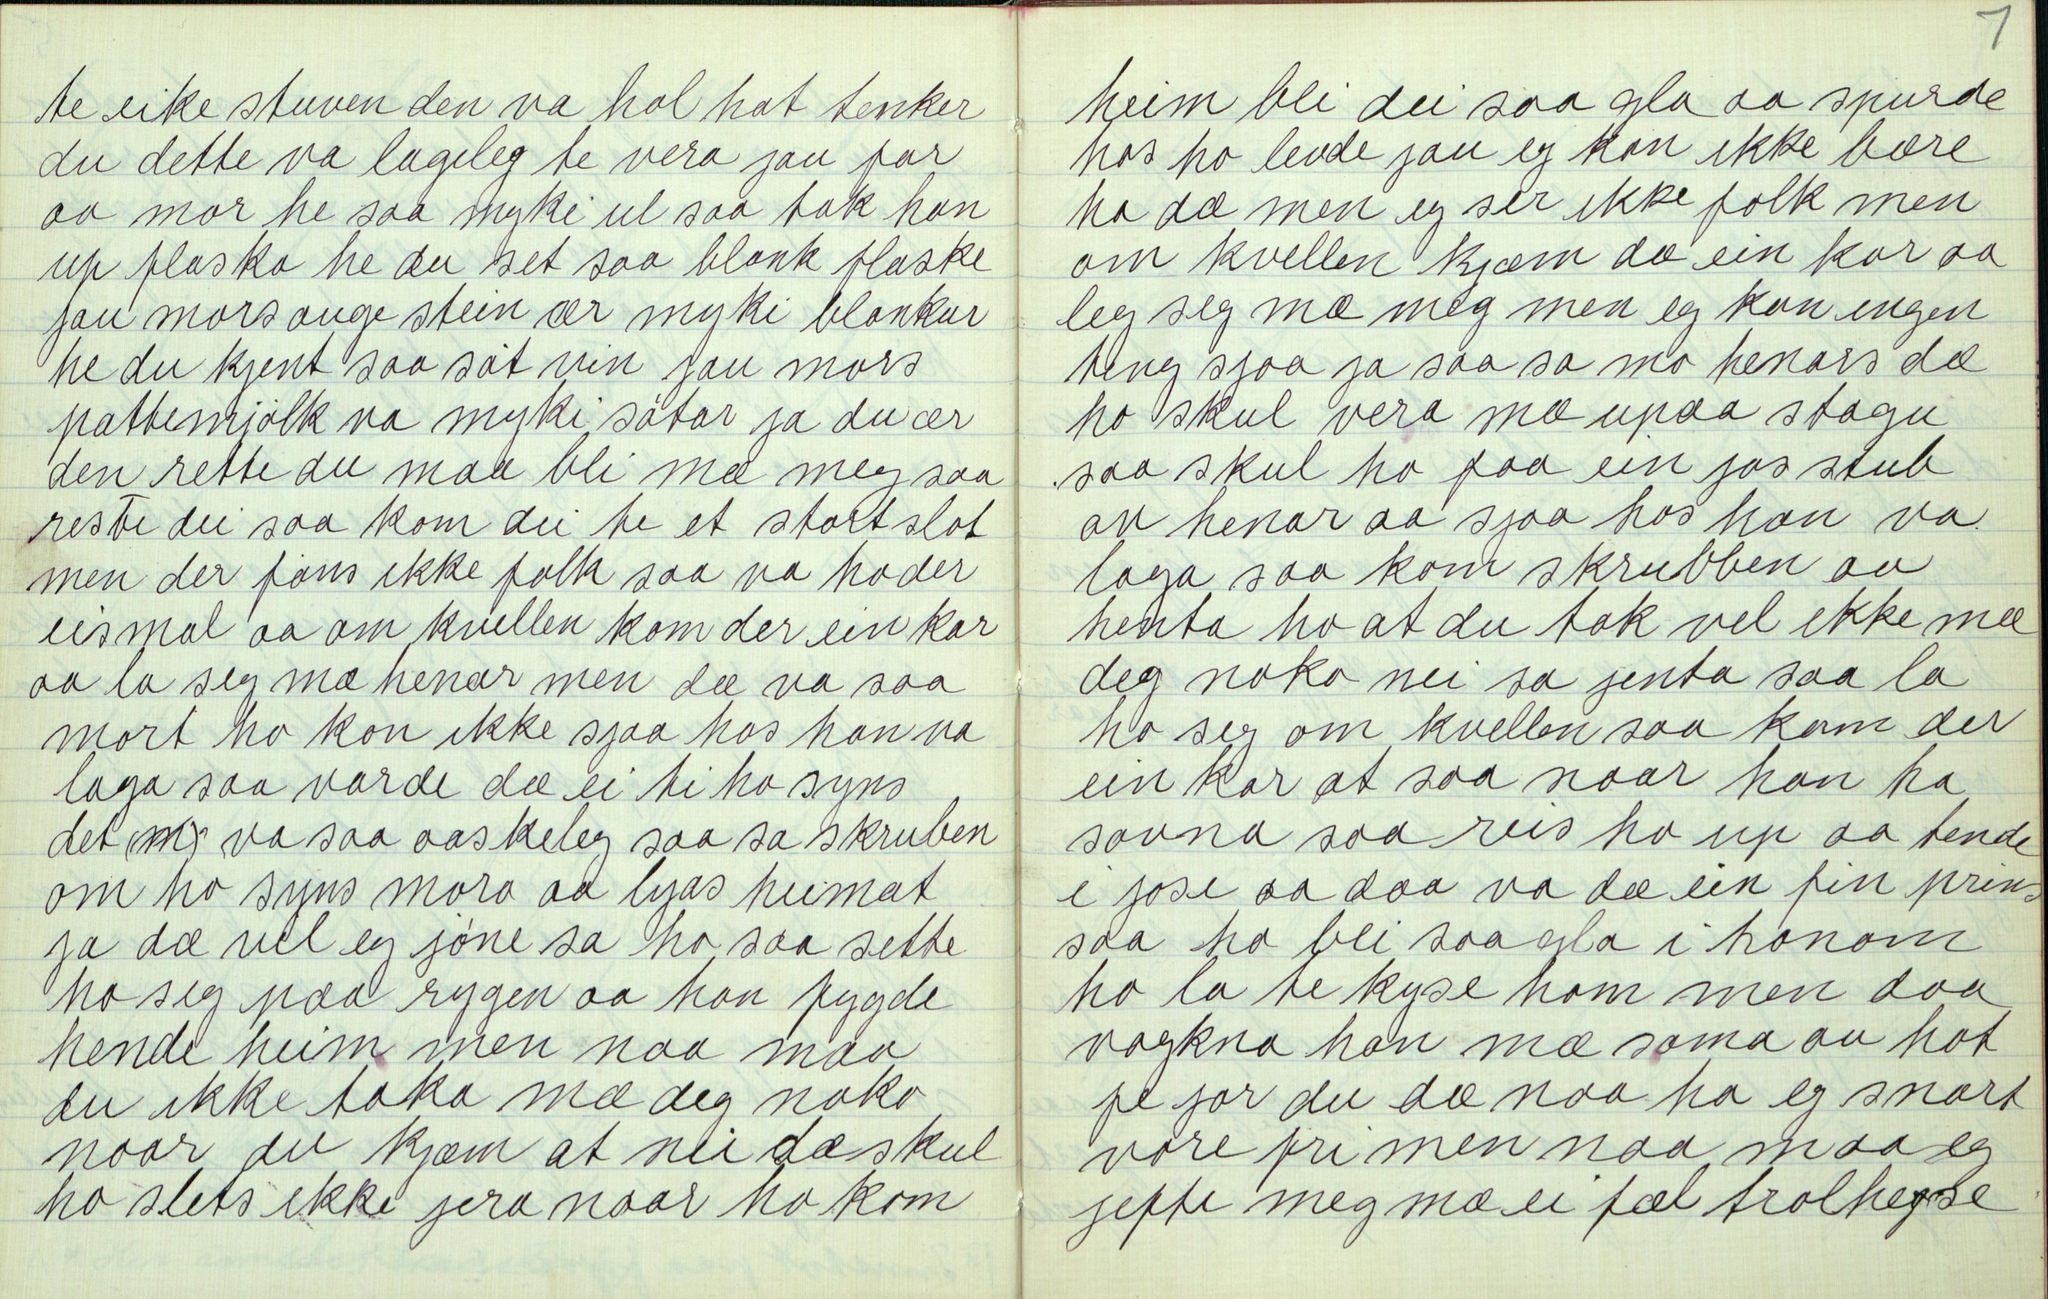 te eike stuven den va hol hat tenker
du dette va lageleg te vera jau far
aa mor he saa myki ul saa tok han
up flaska he du set saa blank flaske
jau mors auge stein ær myki blankur
he du kjent saa söt vin jau mors
pattemjölk va myki sötar ja du ær
den rette du maa bli mæ meg saa
reste dei saa kom dei te et stort slot
men der fans ikke folk saa va ho der
eismal aa om kvellen kom der ein kar
aa la seg mæ henar men dæ va saa
mort ho kon ikke sjaa hos han va
laga saa varde dæ ei ti ho syns
det va saa aaskeleg saa sa skruben
om ho syns moro aa lyas heimat
ja dæ vil eg jöne sa ho saa sette
ho seg paa rygen aa han fygde
hende heim men naa maa
du ikke taka mæ deg noko
naar du kjæm at nei dæ skul
ho slets ikke jera naar ho kom
7
heim blei dei saa gla aa spurde
hos ho levde jau eg kan ikke bære
ha dæ men eg ser ikke folk men
om kvellen kjæm dæ ein kar aa
leg seg mæ meg men eg kan engen
teng sjaa ja saa sa mo henars dæ
ho skul vera mæ upaa stagu
saa skul ho faa ein jos stub
av henar aa sjaa hos han va
laga saa kom skrubben aa
henta ho at du tok vel ikke mæ
deg noko nei sa jenta saa la
ho seg om kvellen saa kom der
ein kar at saa naar han ha
sovna saa reis ho up aa tende
i jose aa daa va dæ ein fin prins
saa ho blei saa gla i honom
ho la te kyse hom men daa
vagkna han mæ soma au hot
fe jor du dæ naa ha eg snart
vore fri men naa maa eg
jefte meg mæ ei fæl trolhegse